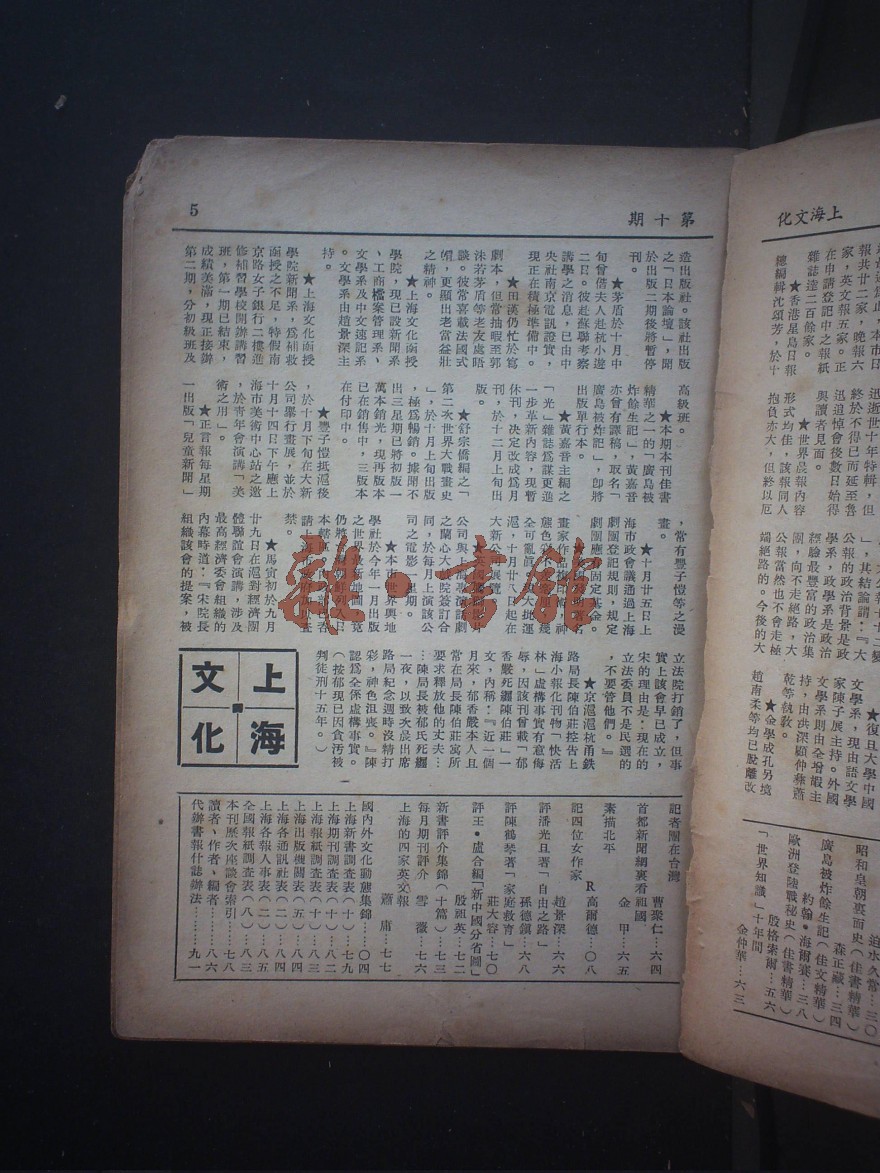 上海文化
報共廿二家，晚報六
家，英文報五家。正
在申請登記中之報紙
雜誌達二百餘家。
★香港星島日報
總編輯沈頌芳，於十
迅逝世十年特輯，但
終於不得已而延至魯
迅追悼會後數日始得
與讀者見面。
★世界晨報內容
形式均佳，該報同人
抱負亦大，但終以厄
」，其結論謂：『大
公報的政治背景是政
學系，政學系是政治
經驗最豐富的政治集
團，向不走絕路，大
公報當然也不會走極
端絕路的。今後的大
★復旦大學中國
文學系，現由語文學
家陳子展主持。外國
文學系則由全增嘏主
持，由洪深顧仲彝蕭
乾等執教。
★金學成孔另境
趙南柔等均已脫離改
迫水久常…三〇
昭和皇朝裏面史（佳書精華）
森正藏…三四
廣島被炸餘生記（佳文精華）
約翰•海爾賽…三八
歐洲登陸戰秘史（佳書精華）
殷格索爾…五六
「世界知識」十年間
金仲華…六三
第十期
5
造出版社。該社出版
之「日本論壇」，聞
於出版二期後將暫停
刊。
★茅盾於十月中
旬曾偕夫人赴杭小遊
二日。彼赴蘇聯考察
講學之消息，已由中
央社南京電訊證實，
現正在積極準備中。
★田漢仍忙於寫
劇本，但常抽暇至郭
沫若茅盾等老友處晤
談。彼常喜戴法國式
帽，更顯出老當益壯
之精神。
★上海文化函授
學院，現已設新聞系
、工商檔案管理系、
文學系及中文速記系
。文學系由趙景深主
持。
★上海文化函授
學院新聞系，爲補救
函授之不足，特假南
京路女子銀行二樓進
修補習學校開辦講習
班，第一期已結束，
成績美滿，現正接辦
第二期，分初級班及
高級班。
★本期本刊佳書
精華之一的「廣島被
炸餘生記」，黃嘉音
亦曾有譯稿，取名「
廣島被炸記」，即將
出版單行本。
★黃嘉音主編之
「光」雜誌爲謀更進
一步革新內容，現暫
休刊，決定改成爲月
刊，於十二月上旬出
版。
★舒宗僑編之「
第二次世界大戰畫史
」，於十月上旬出版
，極爲暢銷。據聞不
出三星期已將初版一
萬本銷光，現再版本
已在銷售中，三版本
在付印中。
★豐子愷抵滬後
，於十月下旬在大新
公司舉行畫展，並於
十月十四日下午應上
海市美術中心站之邀
，於青年會演講「美
術之用」。
★正言報每星期
一出版「兒童新聞」
，常有豐子愷等之漫
畫。
★十月廿五日上
海市政會議通過上海
劇團登記規則，規定
劇團應有固定基金。
大新公司展覽
之蘭心大戲院簽訂合
同，於每月上演該公
司之電影一星期。
★本市世界輿地
學社於今年一月出版
之世界最新地圖，竟
禁。
★馬寅初於九月
廿九日在滬對經濟團
體聯誼會演講，涉及
最高經濟委員會組織的
內幕時道：『宋院長
組織該會的提案，被
立法院打銷了，但事
實上該會早已成立，
宋的理由是：現在的
立法委員不是民選的
，不要管他們。』
★京滬滬杭甬鐵
路局長陳伯莊控告上
海小報化刊物「快活
林」虛構事實有意侮
辱，因該刊曾載「郁
香嚴死纏陳伯莊」一
文，內稱：『近一個
月來，郁香嚴本人且
常在局長陳伯莊寓所
要求釋放他的丈夫…
…陳局長被郁氏死纏
一夜，以致次晨出席
路局紀念週時沒精打
彩，神色沮喪。』陳
認爲全係虛構事實。
（按郁現已因貪污被
判徒刑十五年。）
上海文化
記者團在台灣
曹聚仁…六四
首都新聞網裏看祖國
金甲…六五
素描北平
R高爾德…〇八
記四位女作家
趙景深…六六
評潘光旦著「自由之路」
孫德鎮…六八
評陳鶴琴著「家庭教育」
莊大容…七〇
評王•盧合編「新中國分省圖」
殷祖英…七二
新書評介集錦（十篇）…七三
每月期刊評介　雪薇…七六
上海的四家英文報
蕭庸…七七
國內外文化動態集錦…〇四
上海新書調查表（十）…七九
上海期刊調查表（十）…八二
上海報紙調查表（十）…八三
上海出版機關表（五）…八四
上海各通訊社表（二）…八四
上海各報人事表（二）…八五
全國報紙調查表（八）…八三
本刊歷次座談會索引…七八
讀者、作者、編者…八六
代辦書報什誌辦法…九一